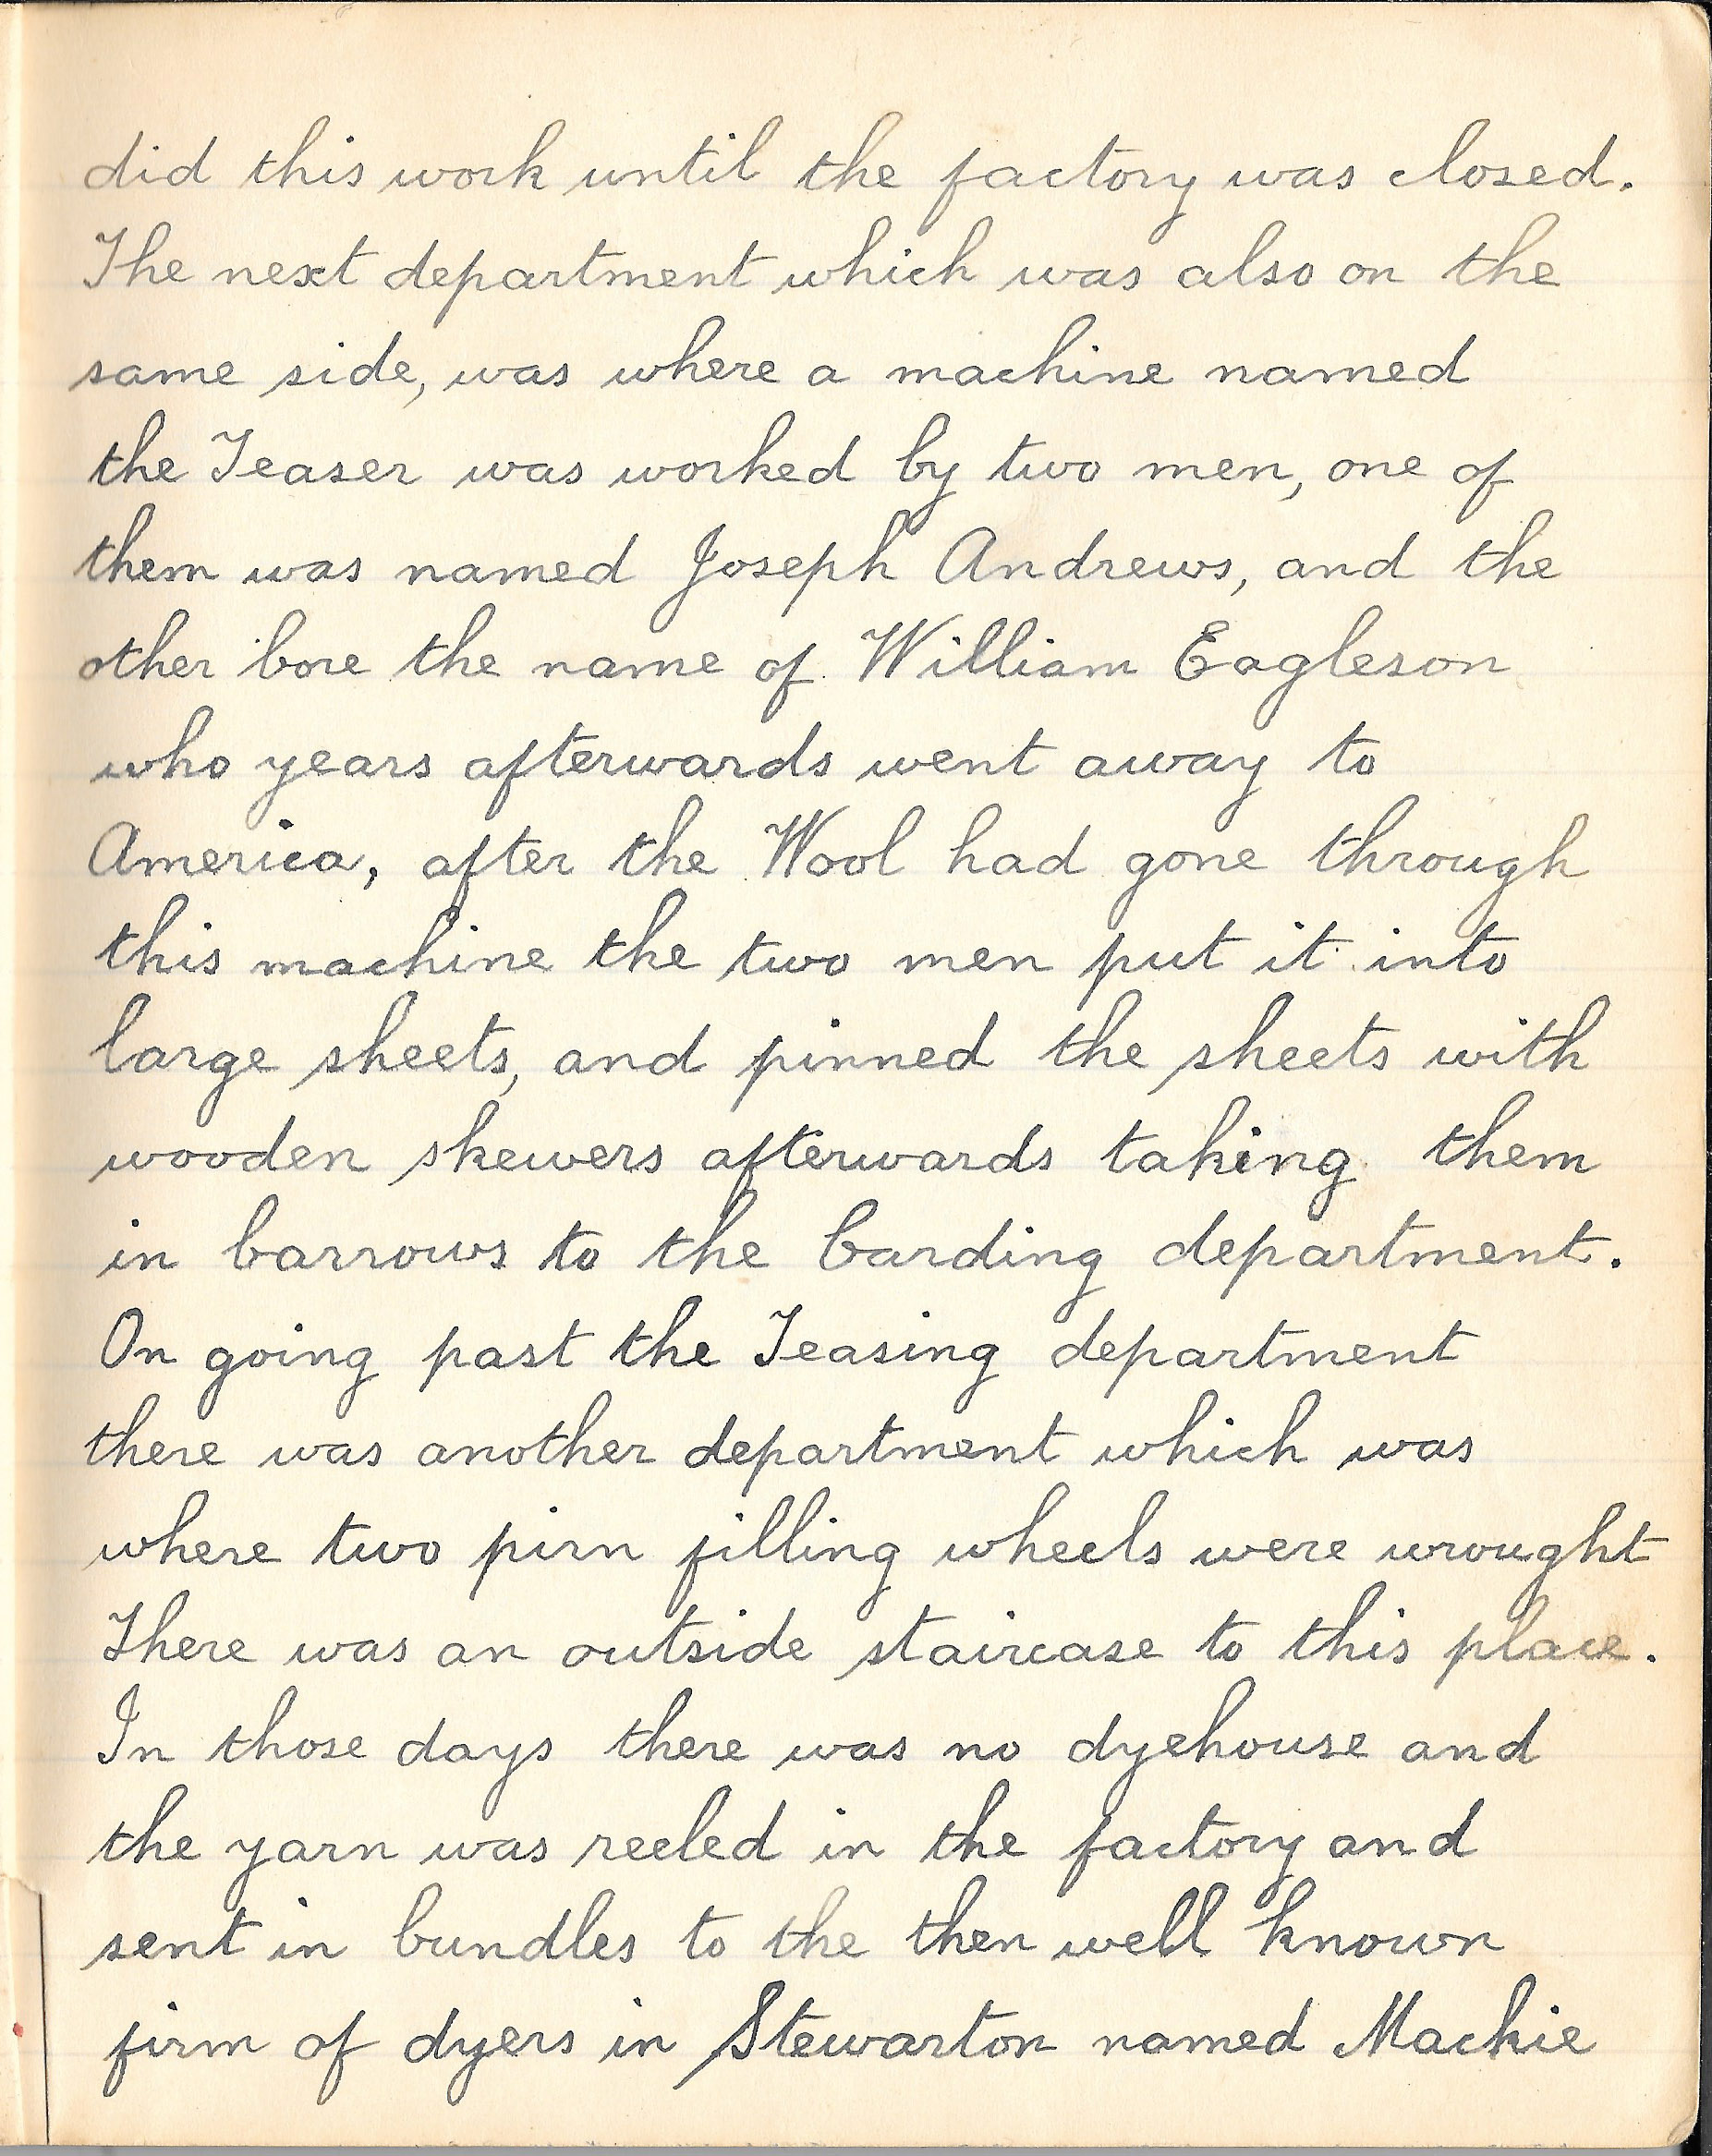 did this work until the factory was closed.
The next department which was also on the
same side, was where a machine named
the Teaser was worked by two men, one of
them was named Joseph Andrews, and the
other bore the name of William Eagleson
who years afterwards went away to
America, after the Wool had gone through
this machine the two men put it into
large sheets, and pinned the sheets with
wooden skewers afterwards taking them
in barrows to the Carding department.
On going past the Teasing department
there was another department which was
where two pirn filling wheels were wrought
There was an outside staircase to this place.
In those days there was no dyehouse and
the yarn was reeled in the factory and
sent in bundles to the then well known
firm of dyers in Stewarton named Mackie